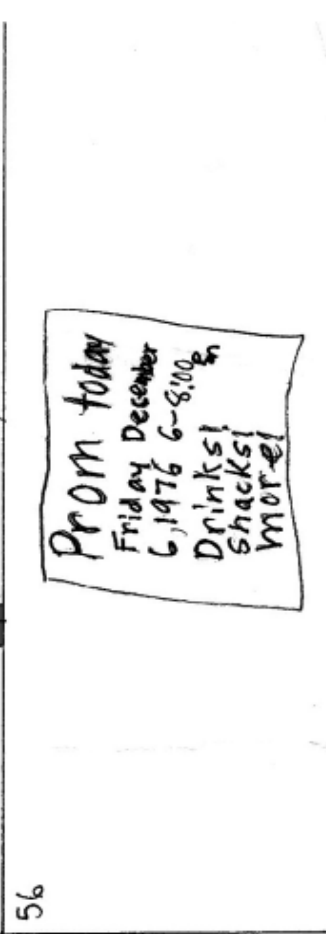 56
Prom today
Friday December
6, 1976 6-8:00 pm
Drinks!
Snacks!
more!